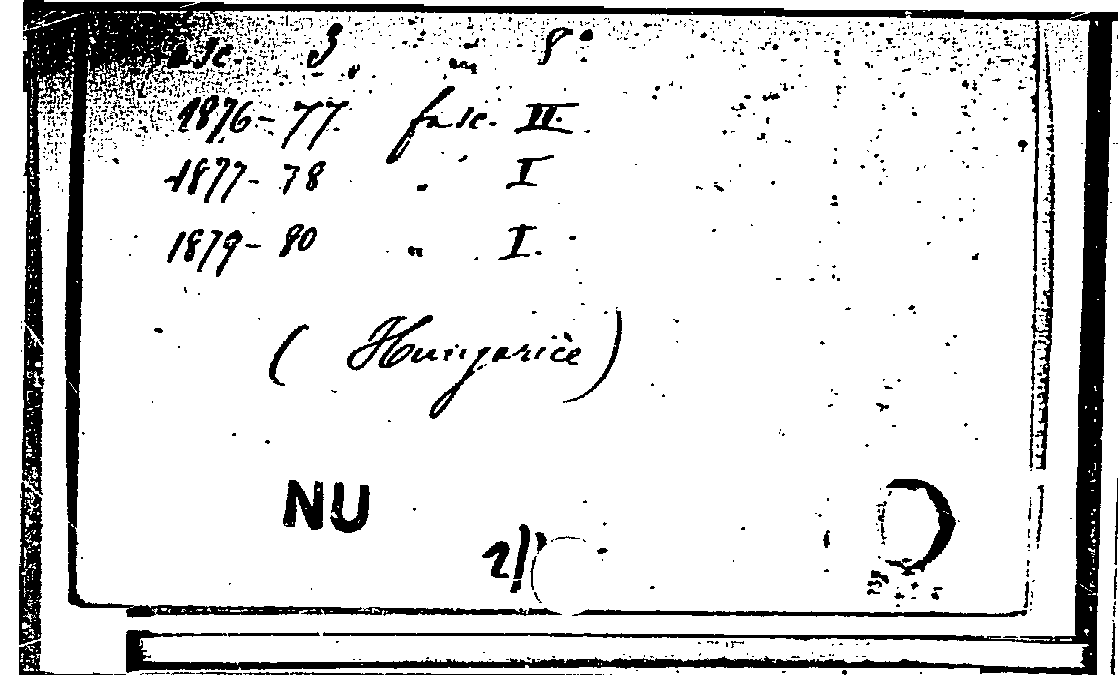 fasc. 3 „ 8°
1876-77. fasc. II.
1877-78 „ I
1879-80 „ I.
(Hungaricè)
NU
2/